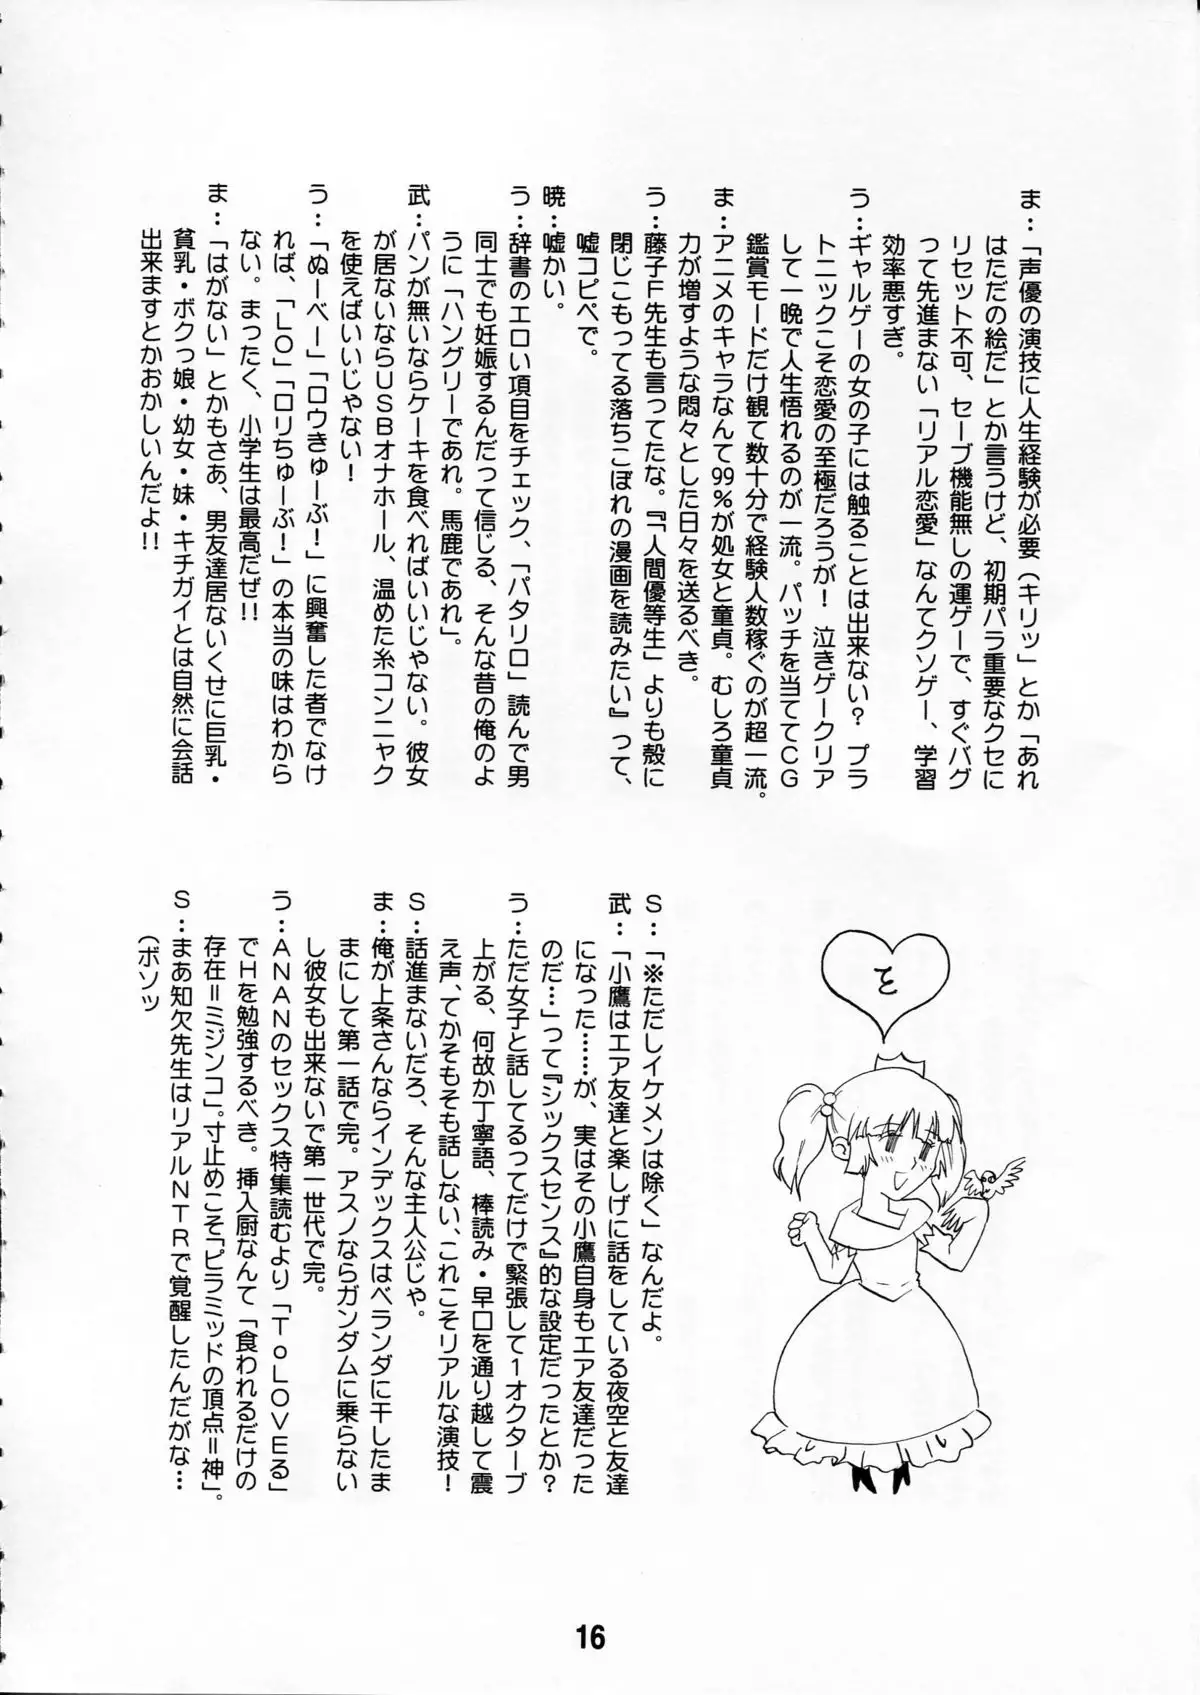 ま：「声優の演技に人生経験が必要（キリッ」とか「あれ
はただの絵だ」とか言うけど、初期パラ重要なクセに
リセット不可、セーブ機能無しの運ゲーで、すぐバグ
って先進まない「リアル恋愛」なんてクソゲー、学習
効率悪すぎ。
う：ギャルゲーの女の子には触ることは出来ない？　プラ
トニックこそ恋愛の至極だろうが！　泣きゲークリア
して一晩で人生悟れるのが一流。パッチを当ててＣＧ
鑑賞モードだけ観て数十分で経験人数稼ぐのが超一流。
ま：アニメのキャラなんて99％が処女と童貞。むしろ童貞
力が増すような悶々とした日々を送るべき。
う：藤子Ｆ先生も言ってたな。『「人間優等生」よりも殻に
閉じこもってる落ちこぼれの漫画を読みたい』って、
嘘コピペで。
暁：嘘かい。
う：辞書のエロい項目をチェック、「パタリロ」読んで男
同士でも妊娠するんだって信じる、そんな昔の俺のよ
うに「ハングリーであれ。馬鹿であれ」。
武：パンが無いならケーキを食べればいいじゃない。彼女
が居ないならＵＳＢオナホール、温めた糸コンニャク
を使えばいいじゃない！
う：「ぬーべー」「ロウきゅーぶ！」に興奮した者でなけ
れば、「ＬＯ」「ロリちゅーぶ！」の本当の味はわから
ない。まったく、小学生は最高だぜ!!
ま：「はがない」とかもさあ、男友達居ないくせに巨乳・
貧乳・ボクっ娘・幼女・妹・キチガイとは自然に会話
出来ますとかおかしいんだよ!!
Ｓ：「※ただしイケメンは除く」なんだよ。
武：「小鷹はエア友達と楽しげに話をしている夜空と友達
になった……が、実はその小鷹自身もエア友達だった
のだ…」って『シックスセンス』的な設定だったとか？
う：ただ女子と話してるってだけで緊張して１オクターブ
上がる、何故か丁寧語、棒読み・早口を通り越して震
え声、てかそもそも話しない、これこそリアルな演技！
Ｓ：話進まないだろ、そんな主人公じゃ。
ま：俺が上条さんならインデックスはベランダに干したま
まにして第一話で完。アスノならガンダムに乗らない
し彼女も出来ないで第一世代で完。
う：ＡＮＡＮのセックス特集読むより「ＴｏＬＯＶＥる」
でＨを勉強するべき。挿入厨なんて「食われるだけの
存在＝ミジンコ」。寸止めこそ「ピラミッドの頂点＝神」。
Ｓ：まあ知欠先生はリアルＮＴＲで覚醒したんだがな…
（ボソッ
と
16